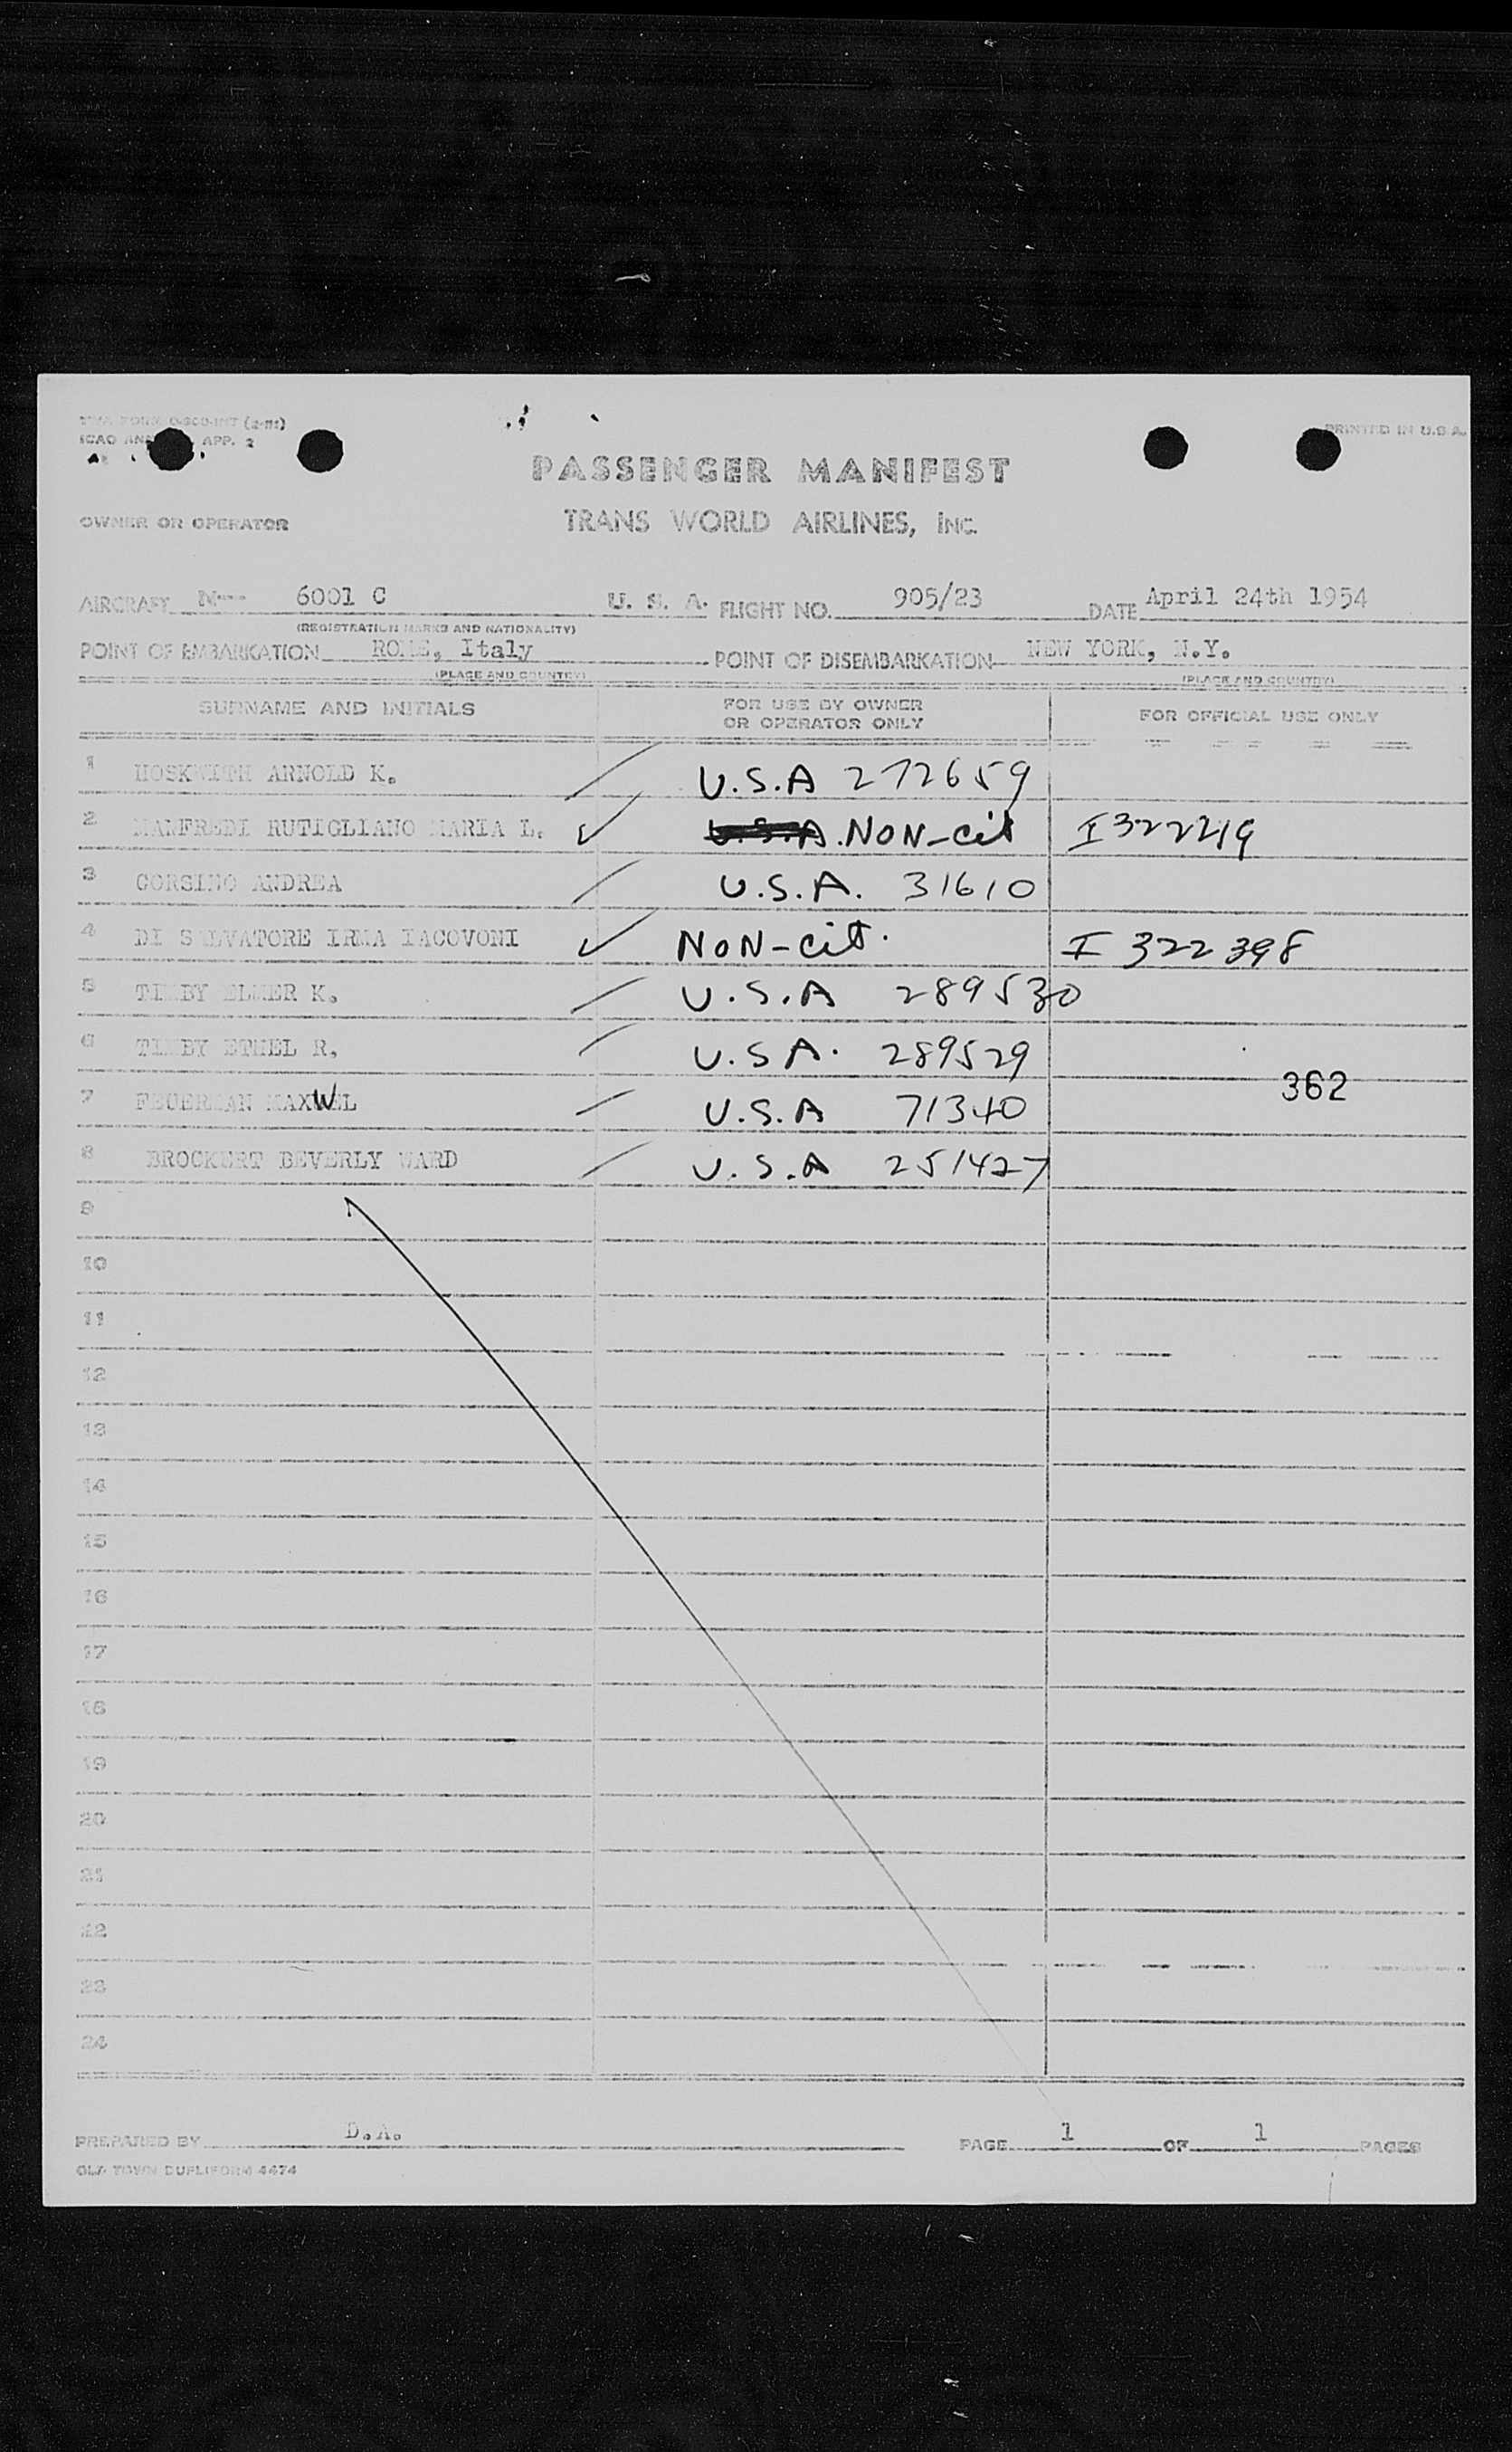 (2-111)
ICAO APP. 2
PRINTED IN U.S.A.
PASSENGER MANIFEST
OWNER OR OPERATOR TRANS WORLD AIRLINES, INC.
AIRCRAFT N--- 6001 C U. S. A. FLIGHT NO. 905/23 DATE April 24th 1954
(REGISTRATION MARKS AND NATIONALITY)
POINT OF EMBARKATION ROME, Italy POINT OF DISEMBARKATION NEW YORK, N.Y.
(PLACE AND COUNTRY) (PLACE AND COUNTRY)
SURNAME AND INITIALS FOR USE BY OWNER OR OPERATOR ONLY FOR OFFICIAL USE ONLY
1 HOSKWITH ARNOLD K. U.S.A 272659
2 MANFREDI RUTIGLIANO MARIA L. U.S.A. NON-cit I322219
3 CORSINO ANDREA U.S.A. 31610
4 DI SALVATORE IRMA IACOVONI NON-cit. I 322398
5 ELMER K. U.S.A 289530
6 ETHEL R. U.S.A. 289529
362
7 FEUERMAN MAXWEL U.S.A 71340
8 BROCKERT BEVERLY WARD U.S.A 251427
9
10
11
12
13
14
15
16
17
18
19
20
21
22
23
24
PREPARED BY D.A. PAGE 1 OF 1 PAGES
TOWN DUPLIFORM 4474